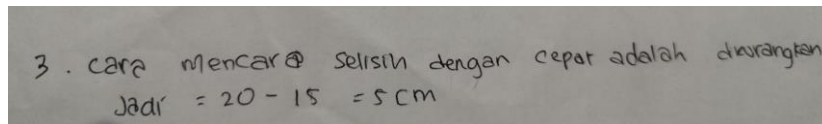 3. cara mencara selisih dengan cepat adalah dikurangkan
Jadi = 20 - 15 = 5 cm